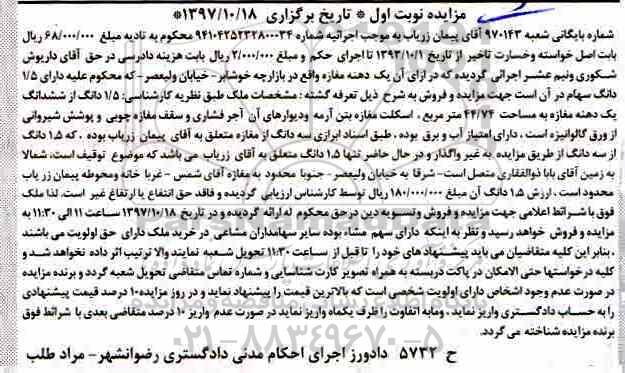 مزایده نوبت اول * تاریخ برگزاری ۱۳۹۷/۱۰/۱۸*
شماره بایگانی شعبه ۹۷۰۱۴۳ آقای پیمان زریاب به موجب اجرائیه شماره ۹۴۱۰۴۲۵۲۳۲۸۰۰۰۳۴ محکوم به تادیه مبلغ ۶۸/۰۰۰/۰۰۰ ریال
بابت اصل خواسته وخسارت تاخیر از تاریخ ۱۳۹۳/۱۰/۱ تا اجرای حکم و مبلغ ۲/۰۰۰/۰۰۰ ریال بابت هزینه دادرسی در حق آقای داریوش
شکوری ونیم عشر اجرائی گردیده که در ازای آن یک دهنه مغازه واقع در بازارچه خوشابر- خیابان ولیعصر -که محکوم علیه دارای ۱/۵
دانگ سهام در آن است جهت مزایده و فروش به شرح ذیل تعرفه گشته : مشخصات ملک طبق نظریه کارشناسی: ۱/۵ دانگ از ششدانگ
یک دهنه مغازه به مساحت ۴۴/۷۴ متر مربع . اسکلت مغازه بتن آرمه ودیوارهای آن آجر فشاری و سقف مغازه چوبی و پوشش شیروانی
از ورق گالوانیزه است . دارای امتیاز آب و برق بوده . طبق اسناد ابرازی سه دانگ از مغازه متعلق به آقای پیمان زریاب بوده . که ۱.۵ دانگ
از سه دانگ از طریق مزایده به غیر واگذار و در حال حاضر تنها ۱.۵ دانگ متعلق به آقای زریاب می باشد که موضوع توقیف است. شمالا
به زمین آقای بابا ذوالغفاری متصل است- شرقا به خیابان ولیعصر- جنوبا محدود به مغازه آقای شمس - غربا خانه ومحوطه پیمان زر یاب
محدود است . ارزش ۱.۵ دانگ آن مبلغ ۱۸۰/۰۰۰/۰۰۰ ریال توسط کارشناس ارزیابی گردیده و فاقد حق انتفاع یا ارتفاق غیر است. لذا ملک
فوق با شرائط اعلامی جهت مزایده و فروش و تسویه دین در حق محکوم له ارائه گردیده و در تاریخ ۱۳۹۷/۱۰/۱۸ ساعت ۱۱ الی ۱۱:۳۰ به
مزایده و فروش خواهد رسید و نظر به اینکه دارای سهم مشاء بوده سایر سهامداران مشاعی در خرید ملک دارای حق اولویت می باشند
. بنابر این کلیه متقاضیان می باید پیشنهادهای خود را تا قبل از ساعت ۱۱:۳۰ تحویل شعبه نمایند والا ترتیب اثر داده نخواهد شد و
کلیه درخواستها حتی الامکان در پاکت دربسته به همراه تصویر کارت شناسایی و شماره تماس متقاضی تحویل شعبه گردد و برنده مزایده
در صورت عدم وجود اشخاص دارای اولویت شخصی است که بالاترین قیمت را پیشنهاد نماید و در روز مزایده۱۰ درصد قیمت پیشنهادی
را به حساب دادگستری واریز نماید . ومابه التفاوت را ظرف یکماه واریز نماید در صورت عدم واریز ۱۰ درصد متقاضی بعدی با شرائط فوق
برنده مزایده شناخته می گردد.
ح ۵۷۳۲ دادورز اجرای احکام مدنی دادگستری رضوانشهر- مراد طلب
۰۲۱-۸۸۳۴۹۶۷۰-۵